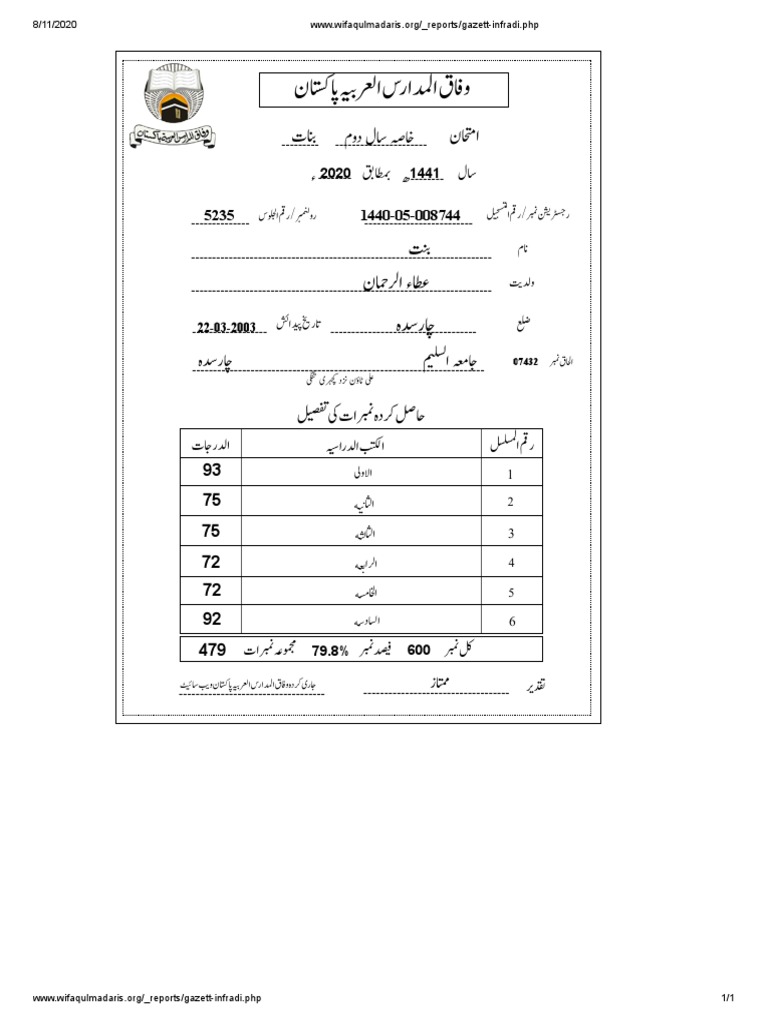 8/11/2020 www.wifaqulmadaris.org/_reports/gazett-infradi.php
وفاق المدارس العربیہ پاکستان
وفاق المدارس العربیہ پاکستان
امتحان خاصہ سال دوم بنات
سال 1441ھ بمطابق 2020ء
رجسٹریشن نمبر/رقم التسجیل 1440-05-008744 رولنمبر/رقم الجلوس 5235
نام بنت
ولدیت عطاء الرحمان
ضلع چارسدہ تاریخ پیدائش 22-03-2003
الحاق نمبر 07432 جامعہ السلیم چارسدہ
علی ٹاؤن نزد کچہری تنگی
حاصل کردہ نمبرات کی تفصیل
رقم المسلسل الکتب الدراسیہ الدرجات
1 الاولی 93
2 الثانیه 75
3 الثالثه 75
4 الرابعه 72
5 الخامسه 72
6 السادسه 92
کل نمبر 600 فیصد نمبر 79.8% مجموعہ نمبرات 479
تقدیر ممتاز جاری کردہ وفاق المدارس العربیہ پاکستان ویب سائیٹ
www.wifaqulmadaris.org/_reports/gazett-infradi.php 1/1